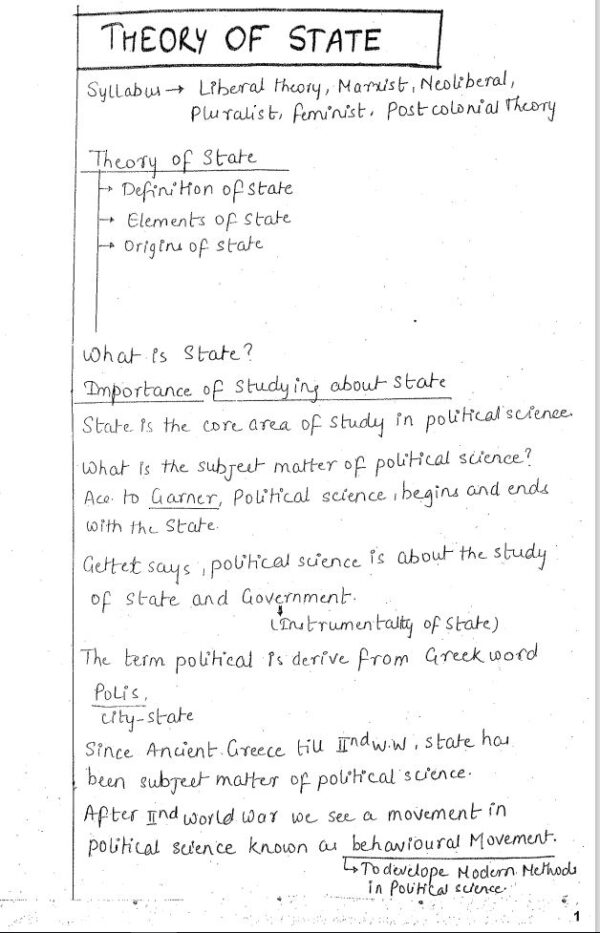 THEORY OF STATE
Syllabus → Liberal theory, Marxist, Neoliberal,
Pluralist, feminist, Postcolonial Theory
Theory of State
→ Definition of State
→ Elements of State
→ Origins of State
What is State?
Importance of Studying about State
State is the core area of study in political science.
What is the subject matter of political science?
Acc. to Garner, Political science, begins and ends
with the State.
Gettet says, political science is about the study
of State and Government.
(Instrumentality of State)
The term political is derive from Greek word
Polis,
City-state
Since Ancient Greece till IInd W.W, state has
been subject matter of political science.
After IInd World War we see a movement in
political science known as behavioural Movement.
↳ To develope Modern Methods
in Political science.
1